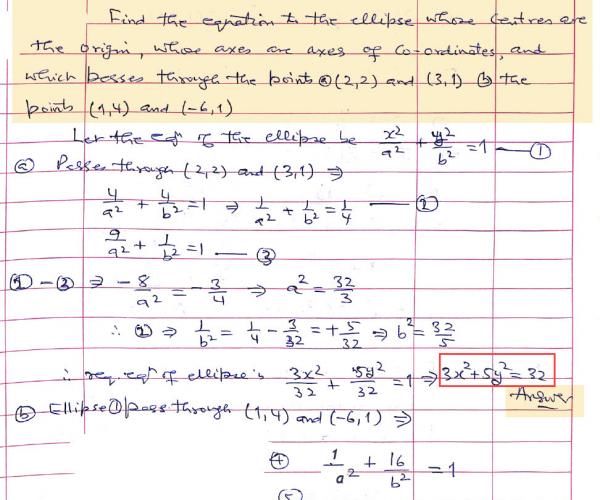 Find the equation to the ellipse whose Centres are
the origin, whose axes are axes of Co-ordinates, and
which passes through the points ⓐ (2,2) and (3,1) ⓑ the
points (1,4) and (-6,1)
Let the eqⁿ of the ellipse be x²/a² + y²/b² = 1 — ①
ⓐ Passes through (2,2) and (3,1) ⇒
4/a² + 4/b² = 1 ⇒ 1/a² + 1/b² = 1/4 — ②
9/a² + 1/b² = 1 — ③
② - ③ ⇒ -8/a² = -3/4 ⇒ a² = 32/3
∴ ② ⇒ 1/b² = 1/4 - 3/32 = +5/32 ⇒ b² = 32/5
∴ req. eqⁿ of ellipse is 3x²/32 + 5y²/32 = 1 ⇒ 3x² + 5y² = 32
Answer
ⓑ Ellipse ① pass through (1,4) and (-6,1) ⇒
④ 1/a² + 16/b² = 1
⑤